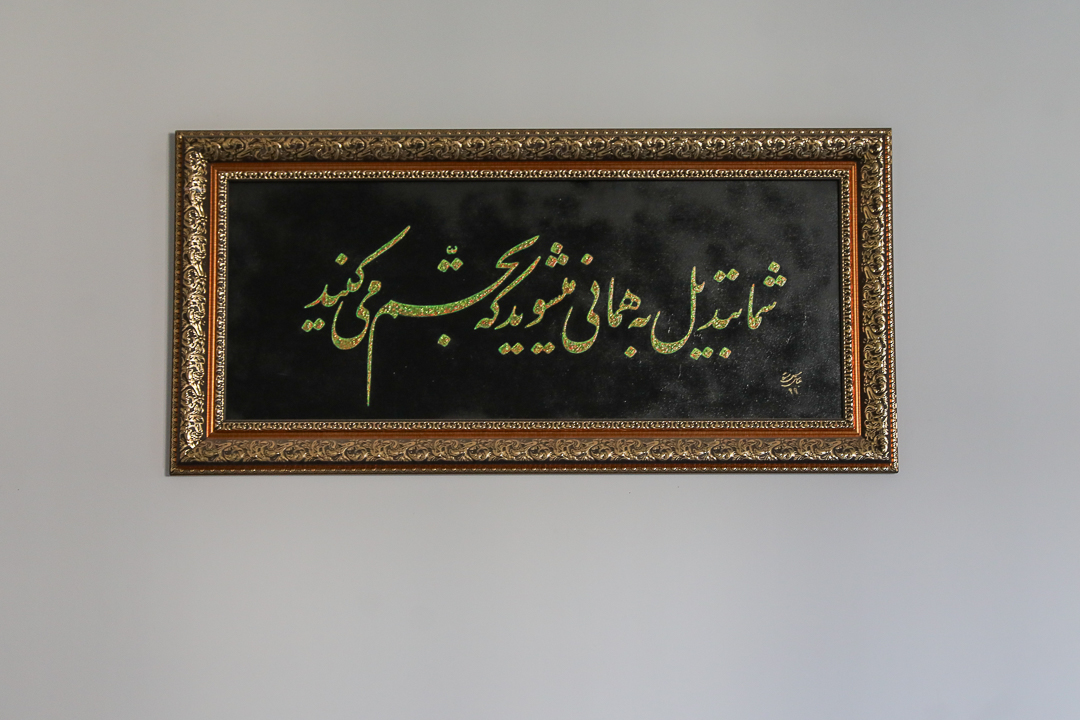 شما تبدیل به همانی میشوید که تجسّم می کنید
۹۹